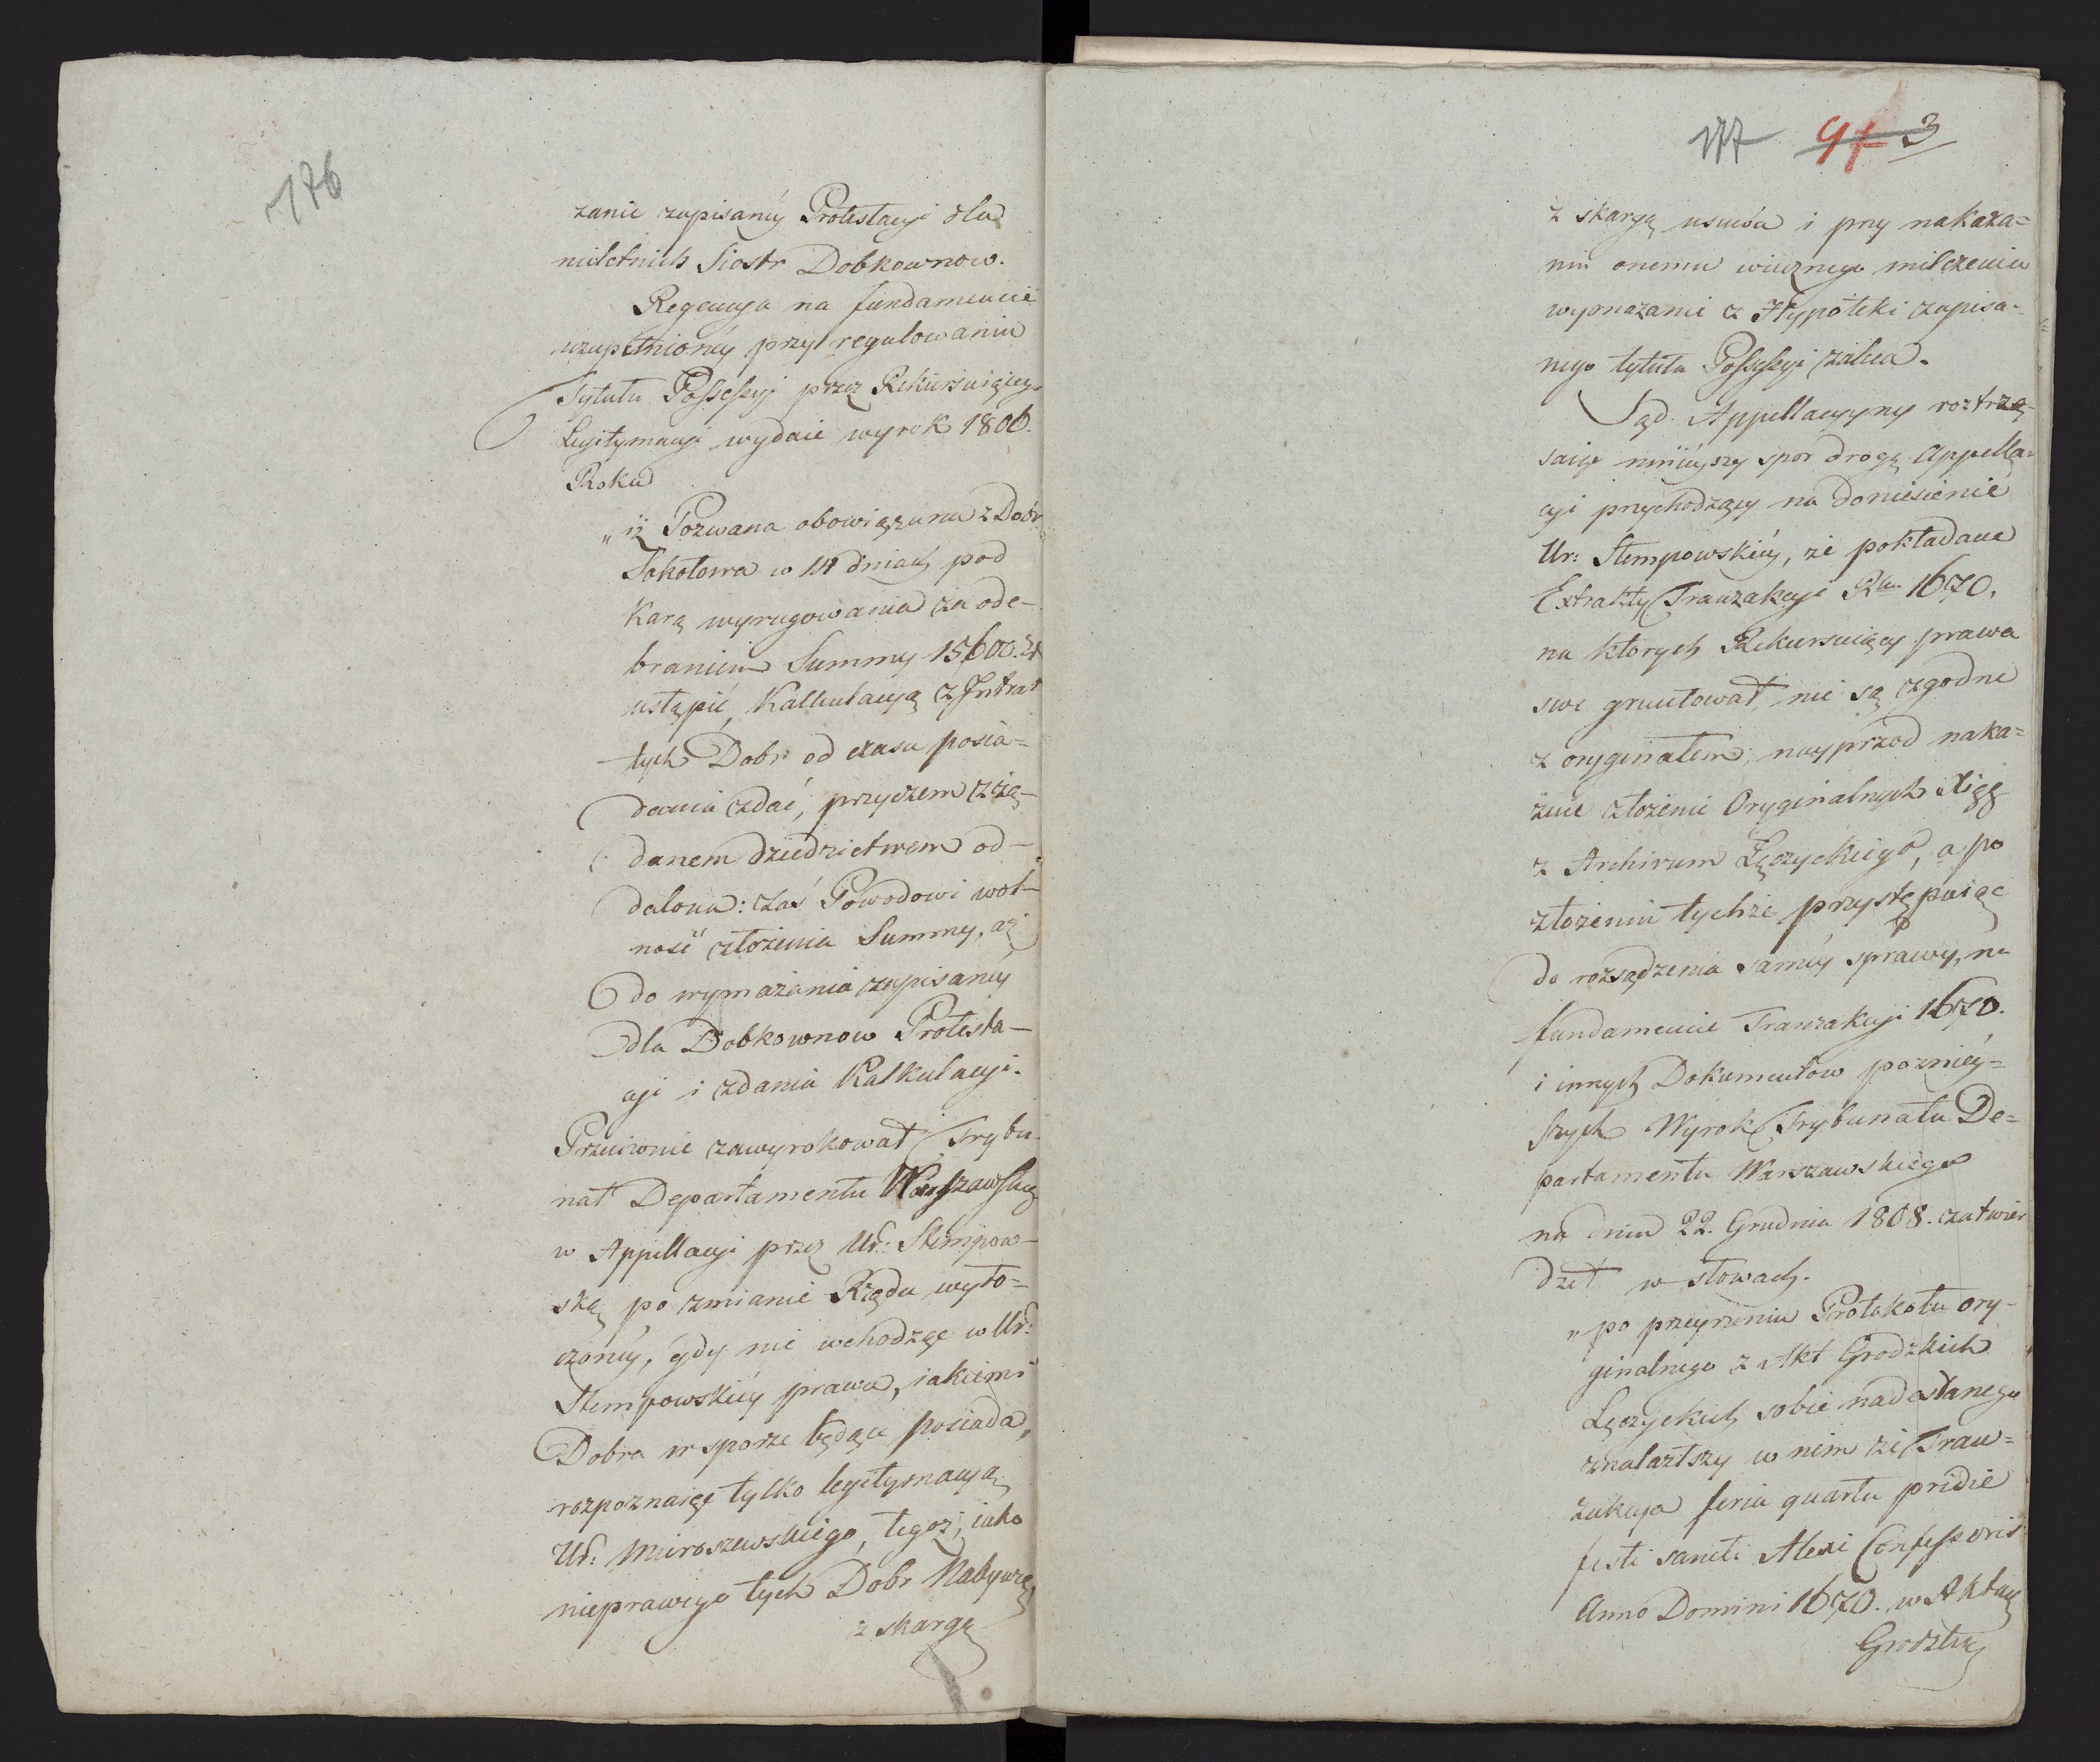 176
zanie zapisanéy Protestacyi dla
nieletnich Siostr Dobkownow.
Regencya na fundamencie
uzupełnionéy przy regulowaniu
Tytułu Possessyi przez Rekursuiącego
Legitymacyi wydaie wyrok 1806.
Roku
„iż Pozwana obowiązana z Dobr
Sokołowa w 14 dniach pod
karą wyrugowania za ode-
braniem Summy 15600. Zł
ustąpić, Kalkulacyą z Intrat
tych Dobr od czasu posia=
dania zdać, przyczem z żą-
danem dziedzictwem od-
dalona: zaś Powodowi wol-
ność złożenia Summy, aż
do wymazania zapisanéy
dla Dobkownow Protesta-
cyi i zdania Kalkulacyi.
Przeciwnie zawyrokował Trybu-
nał Departamentu Warszawskiego
w Appellacyi przez Ur: Stempow-
ską po zmianie Rządu wyto=
czonéy, gdy nie wchodząc w Ur:
Stempowskiéy prawa, iakiemi
Dobra w sporze będące posiada,
rozpoznaiąc tylko legitymacyą
Ur: Mieroszewskiego, tegoż, iako
nieprawego tych Dobr Nabywcę,
z skargą
177 97 3
z skargą usuwa i przy nakaza=
niu onemu wiecznego milczenia
wymazanie z Hypoteki zapisa=
nego tytułu Possessyi zaleca.
Sąd Appellacyiny roztrzą-
saiąc ninieyszy spor drogą Appella=
cyi przychodzący na doniesienie
Ur: Stempowskiéy, że pokładane
Extrakty Tranzakcyi Rku 1670,
na ktorych Rekursuiący prawa
swe gruntował, nie są zgodne
z oryginałem, nayprzód naka=
zuie złożenie Oryginalnych Xiąg
z Archiwum Łęczyckiego, a po
złożeniu tychże przystępuiąc
do rozsądzenia saméy sprawy, na
fundamencie Tranzakcyi 1670.
i innych Dokumentow poźniéy=
szych Wyrok Trybunału De=
partamentu Warszawskiego
na dniu 22. Grudnia 1808. zatwier
dzeł w słowach.
„po przeyrzeniu Protokołu ory-
ginalnego z Akt Grodzkich
Łęczyckich sobie nadesłanego
znalazłszy w nim że Tran=
zakcya feria quarta pridie
festi sancti Alexi Confessoris
Anno Domini 1670. w Aktach
Grodzkich